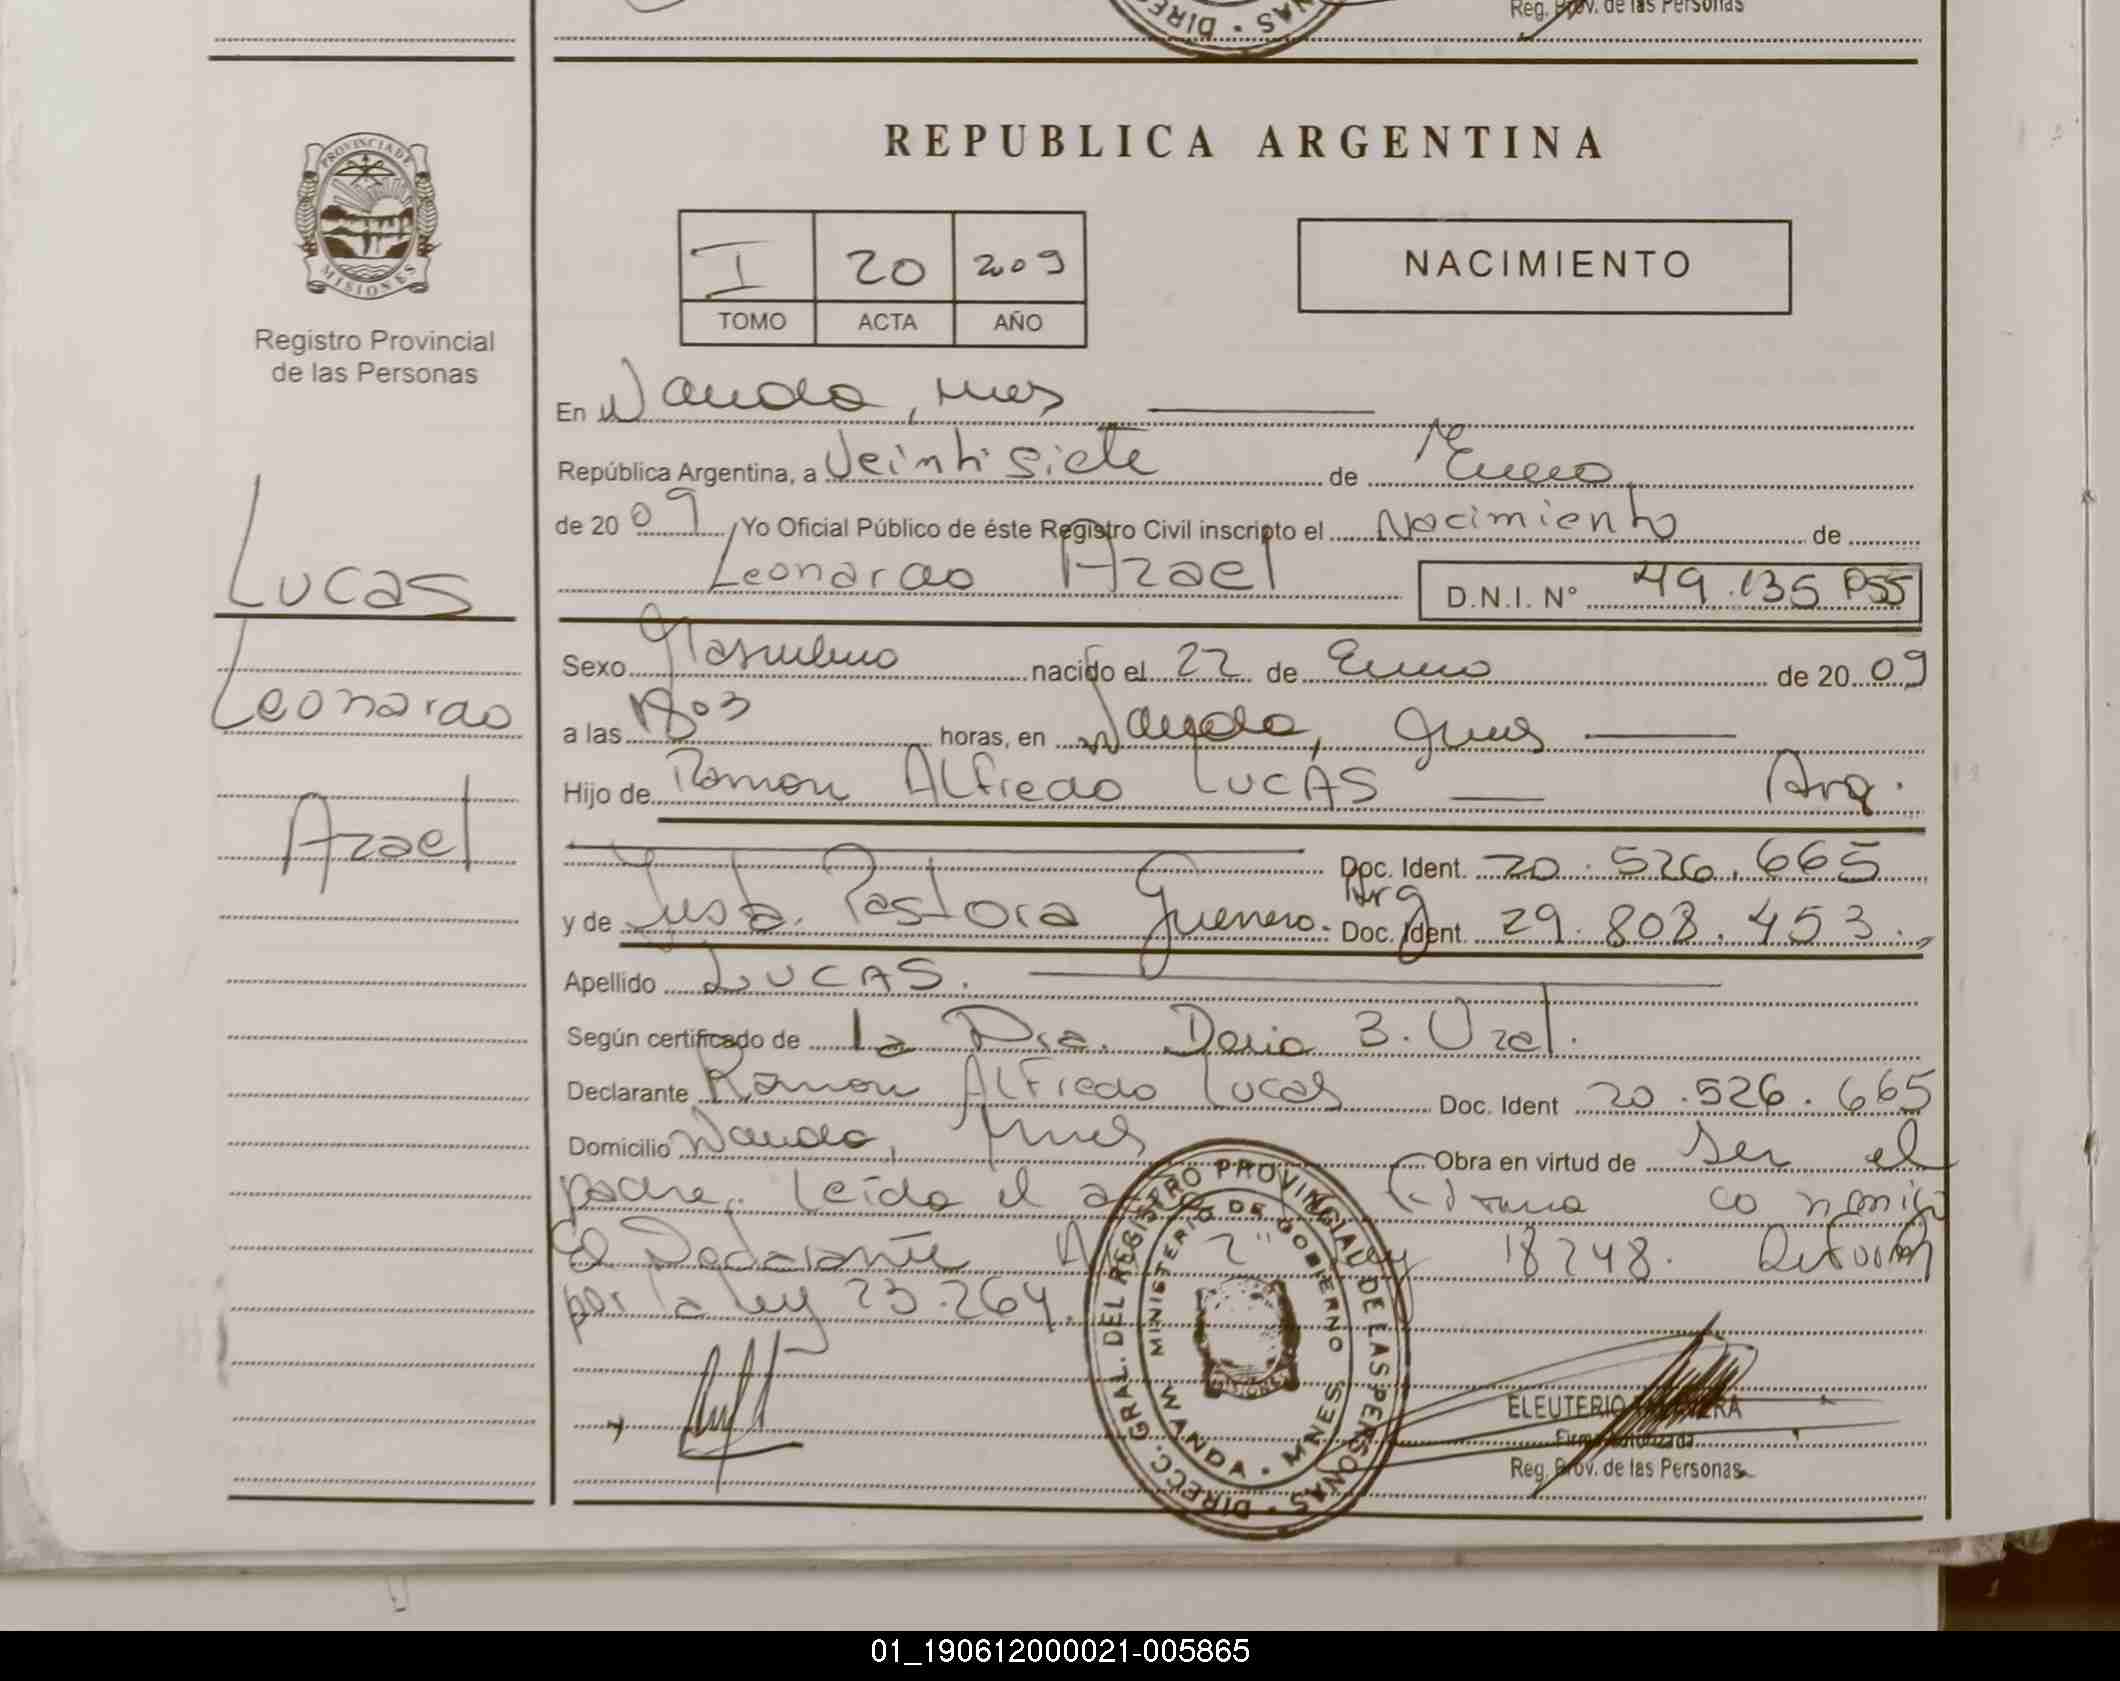 Reg. Prov. de las Personas
REPUBLICA ARGENTINA
PROVINCIA DE
MISIONES
Registro Provincial
de las Personas
I 20 2009
TOMO ACTA AÑO
NACIMIENTO
En Wanda, Mnes
República Argentina, a Veintisiete de Enero
de 2009, Yo Oficial Público de éste Registro Civil inscripto el Nacimiento de
Leonardo Azael D.N.I. N° 49.135 055
Lucas
Leonardo
Azael
Sexo Masculino nacido el 22 de Enero de 2009
a las horas, en Wanda, Mnes
Hijo de Ramon ALfredo LUCAS Arg.
Doc. Ident. 20.526.665
y de Justa Pastora Guerrero. Arg Doc. Ident. 29.808.453.
Apellido LUCAS.
Según certificado de la Dra. B. Uzal.
Declarante Ramon ALFredo Lucas Doc. Ident 20.526.665
Domicilio Wanda, Mnes Obra en virtud de ser el
padre. Leída el Firma conmigo
El Declarante 2" Ley 18248.
por la Ley 23.264.
DIRECC. GRAL. DEL REGISTRO PROVINCIAL DE LAS PERSONAS
MINISTERIO DE GOBIERNO
MISIONES
WANDA - MNES
ELEUTERIO
Firma Autorizada
Reg. Prov. de las Personas
01_190612000021-005865